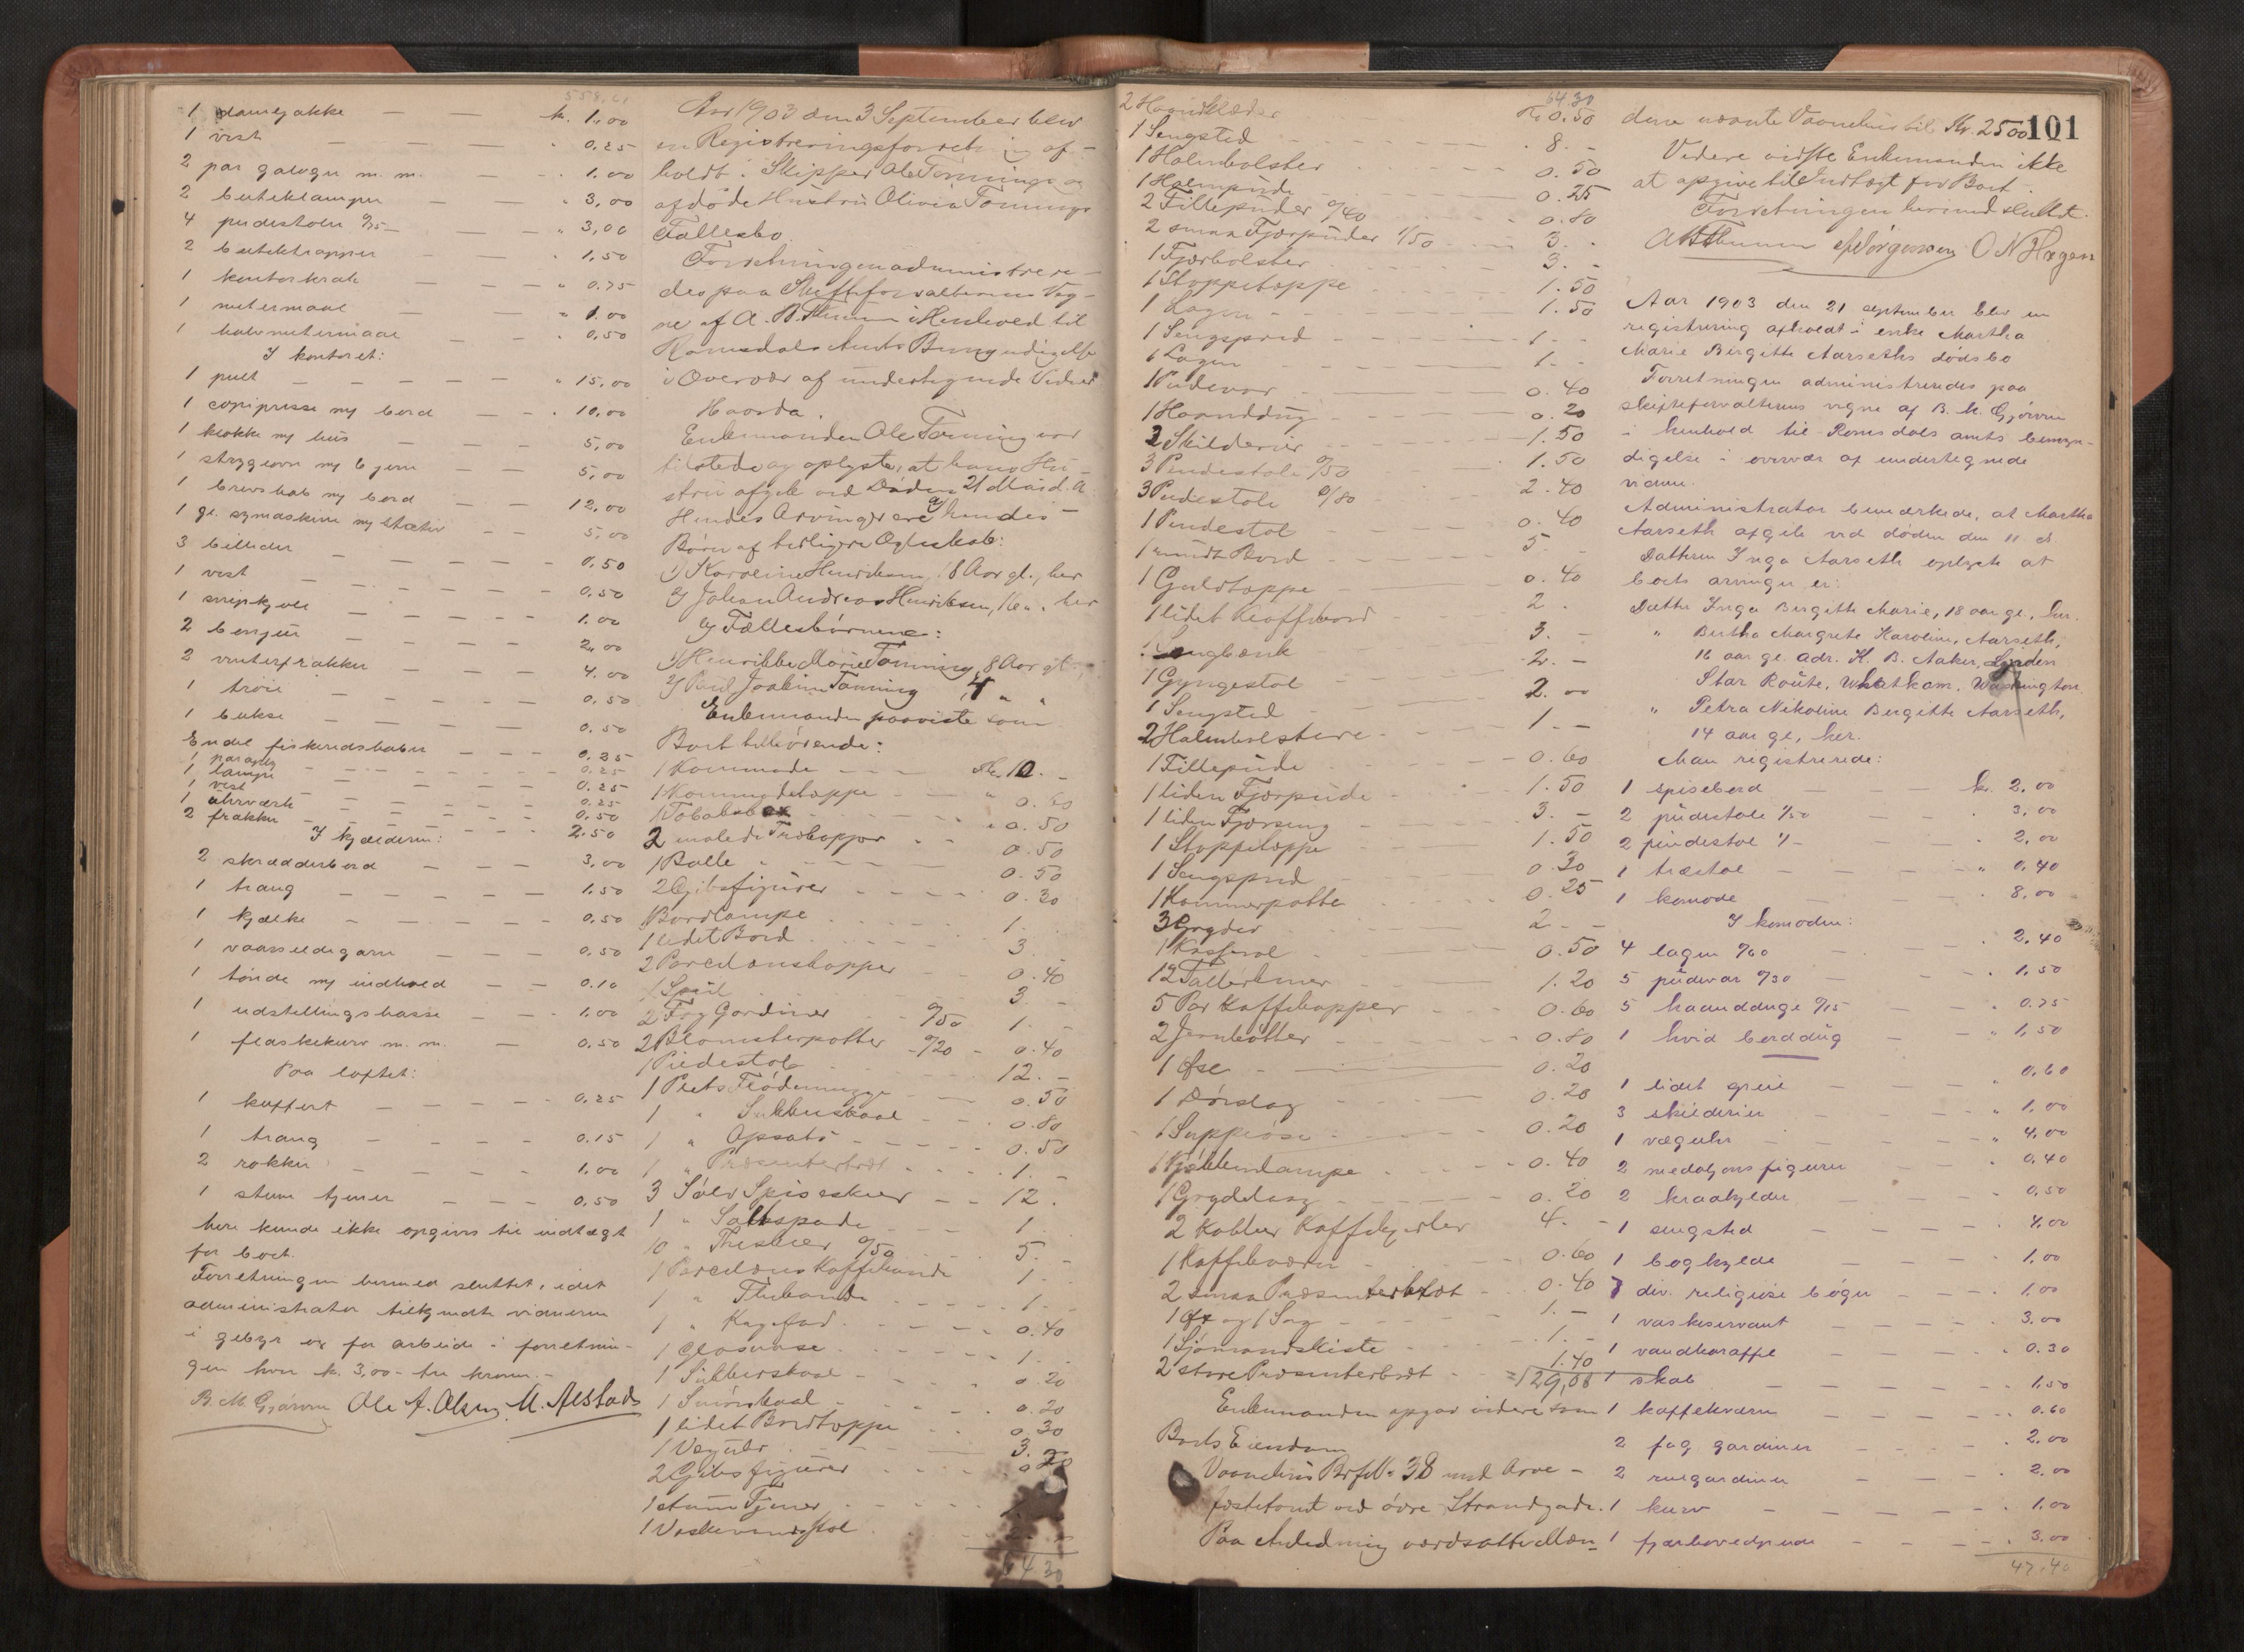 558.61
1 damejakke — — k. 1,00
1 vest — — — " 0.25
2 par galoger m. m. — " 1.00
2 butiklamper — — " 3,00
4 pudestoler 0/75 — " 3,00
2 butiktrapper — — " 1,50
1 kontorkrak — — " 0.75
1 metermaal — — " 1.00
1 halvmetermaal — — " 0,50
I kontoret:
1 pult — — — " 15,00
1 copipresse m/ bord — — " 10,00
1 klokke m/ hus — — 5,00
1 strygeovn m/ 6 jern — 5,00
1 brevskab m/ bord — 12,00
1 gl. symaskine m/ stativ — 5,00
3 billeder — — — 0.50
1 vest — — — 0.50
1 snipkjole — — — 1.00
2 bonjour — — — 2,00
2 vinterfrakker — — 4.00
1 trøie — — — 0.50
1 bukse — — — 0.50
Endel fiskeredskaber — 0.25
1 paraply — — — 0.25
1 lampe — — — 0.25
1 vest — — — 0.25
1 uhrværk — — — 0.50
2 frakker — — — 2.50
I kjælderen:
2 skrædderbord — — 3,00
1 trang — — — 1,50
1 kjælke — — — 0,50
1 vaarsildgarn — — 0,50
1 tønde m/ indhold — — 0.10
1 udstillingskasse — — 1.00
1 flaskekurv m. m. — 0.50
Paa loftet:
1 koffert — — — 0.25
1 trang — — — 0.15
2 rokker — — — 1,00
1 stum tjener — — — 0,50
here kunde ikke opgives til indtægt
for boet.
Forretningen hermed sluttet, idet
administrator tilkjendte vidnerne
i gebyr og for arbeide i forretnin-
gen hver k. 3,00 - tre kroner. -
B. M. Gjørvm Ole A. Olsen M. Alstad
Aar 1903 den 3 September blev
en Registreringsforretning af-
holdt i Skipper Ole Tønnings og
afdøde Hustru Olivia Tønnings
Fællesbo.
Forretningen administrere-
des paa Skifteforvalterens Veg-
ne af A. B. Thunem i Henhold til
Romsdals Amts Bemyndigelse
i Overvær af undertegnede Vidner
Haarda.
Enkemanden Ole Tønning var
tilstede og oplyste, at hans Hu-
stru afgik ved Døden 21 Mai d. A.
Hendes Arvinger ere a) hendes
Børn af tidligere Ægteskab:
1) Karoline Henriksen, 18 Aar gl., her
2) Johan Andreas Henriksen, 16 " . her
b) Fællesbørnene:
1) Henrikke Marie Tønning, 8 Aar gl.
2) Paul Joakim Tønning 4 " "
Enkemanden paaviste som
Boet tilhørende:
1 Kommode — — Kr. 10. -
1 Kommodetæppe — " 0.60
1 Tobaksbox — " 0.50
2 malede Trækopper " 0.50
1 Balle — — 0.50
2 Gibsfigurer — — 0.30
1 Bordlampe — — 1. -
1 lidet Bord — — 3
2 Porcelænskopper — 0.40
1 Speil — — 3. -
2 Fag Gardiner 0/50 1. -
2 Blomsterpotter 0/20 - 0.40
1 Piedestol — 12. -
1 Plets Flødemugge — 0.50
1 " Sukkerskaal — 0.80
1 " Opsats — 0.50
1 " Præsenterbræt — 1. -
3 Sølv Spiseskeer — 12.
1 " Saltspade — 1
10 " Theskeer 0/50 — 5. -
1 Porcelæns Kaffekande 1 -
1 " Thekande — 1. -
1 " Kagefad — 0.40
1 Glasvase — 1. -
1 Sukkerskaal — 0.20
1 Smørskaal — 0.20
1 lidet Bordtæppe — 0.30
1 Væguhr — 3. -
2 Gibsfigurer
1 stum Tjener
1 Vaskevandsstol
64.30
64.30
2 Haandklæder Kr. 0.50
1 Sengsted — 8. -
1 Halmbolster — 0.50
1 Halmpude — 0.25
2 Fillepuder 0/40 0.80
2 smaa Fjærpuder 1/50 3. -
1 Fjærbolster — 3. -
1 Stoppetæppe — 1.50
1 Lagen — 1.50
1 Sengspred — 1 -
6 Lagen — 1. -
1 Pudevar — 0.40
1 Haanddug — 0.20
3 Skilderier — 1.50
3 Pindestole 0/50 1.50
3 Pindestole 0/80 2.40
1 Pindestol — 0.40
1 rundt Bord — 5 -
1 Gulvtæppe — 0.40
1 lidet Kaffebord — 2.
1 Langbænk — 3. -
1 Gyngestol — 2. -
1 Sengsted — 2.00
2 Halmbolstere — 1. -
1 Fillepude — 0.60
1 liden Fjærpude — 1.50
1 liden Fjærseng — 3. -
1 Stoppetæppe — 1.50
1 Sengspred — 0.30
1 Kammerpotte — 0.25
3 Gryder — 2. -
1 Kasserol — 0.50
12 Tallerkner — 1.20
5 Par Kaffekopper — 0.60
2 Jernbøtter — 0.80
1 Øse — 0.20
1 Dørslag — 0.20
1 Suppeøse — 0.20
1 Kjøkkenlampe — 0.40
1 Grydelaag — 0.20
2 Kobber Kaffekjedler 4. -
1 Kaffekværn — 0.60
2 smaa Præsenterbræt 0.40
1 Øx og 1 Sag — 1. -
1 Sjømandskiste — 1. -
2 store Præsenterbræt 1.40
129,00
Enkemanden opgav videre som
Boets Eiendom
Vaanehus Brf. No 38 med Arve-
fæstetomt ved øvre Strandgade.
Paa Anledning værdsatte Mæn-
101
dene nævnte Vaanehus til Kr. 2500
Videre vidste Enkemanden ikke
at opgive til Indtægt for Boet.
Forretningen hermed sluttet.
A B Thunem Jørgensen O N Hagen
Aar 1903 den 21 september blev en
registrering afholdt i enke Martha
Marie Birgitte Aarseths dødsbo
Forretningen administreredes paa
skifteforvalterens vegne af B. M. Gjørvm
i henhold til Romsdals amts bemyn-
digelse i overvær af undertegnede
vidner.
Administrator bemærkede, at Martha
Aarseth afgik ved døden den 11 d.
Datteren Inga Aarseth oplyste at
boets arvinger er:
Datter Inga Birgitte Marie, 18 aar gl., her.
" Bertha Margrete Karoline, Aarseth,
16 aar gl. adr. K. B. Aaker, Lynden
Star Route, Whatkom. Washington
" Petra Nikoline Birgitte Aarseth,
14 aar gl., her.
Man registrerede:
1 spisebord — — k. 2,00
2 pudestole 1/50 — " 3,00
2 pindestole 1/- — " 2,00
1 træstol — — " 0,40
1 komode — — 8,00
I komoden:
4 lagen 0/60 — " 2,40
5 pudevar 0/30 — " 1,50
5 haandduge 0/15 — " 0.75
1 hvid borddug — " 1,50
1 lidet speil — — " 0.60
3 skilderier — — " 1,00
1 væguhr — — " 4,00
2 medaljonsfigurer — " 0,40
2 kraahylder — — 0,50
1 sengsted — — " 4,00
1 boghylde — — " 1,00
7 div. religiøse bøger — 1,00
1 vaskeservant — — 3.00
1 vandkaraffel — — " 0.30
1 skab — — — 1,50
1 kaffekværn — — 0.60
2 fag gardiner — — " 2.00
2 rulgardiner — — 2.00
1 kurv — — — 1,00
1 fjærhovedpude — — 3.00
47.40